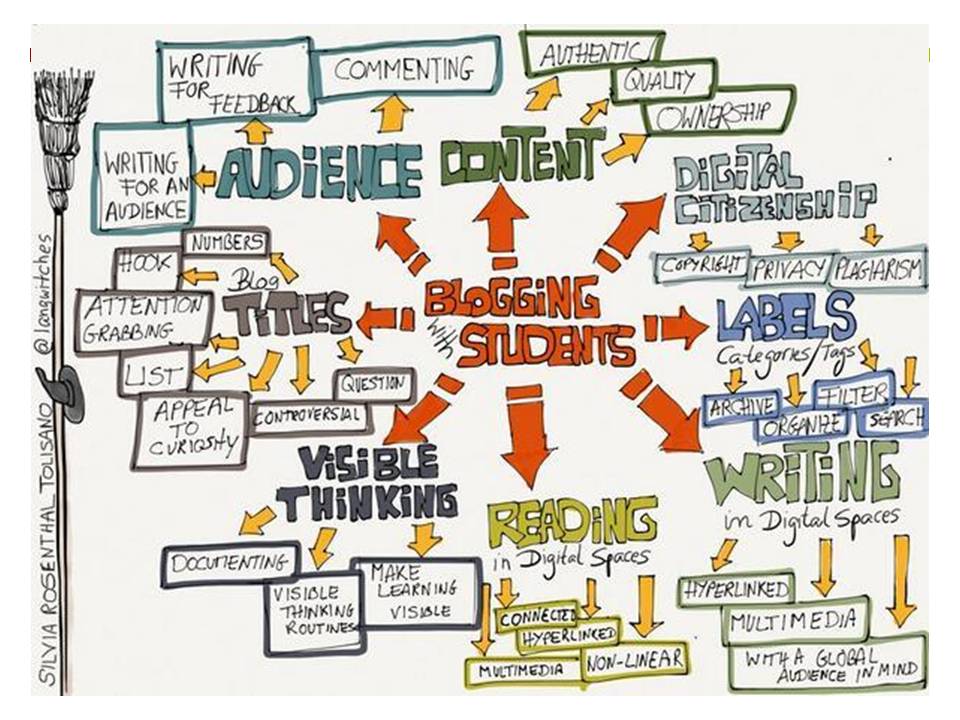 SILVIA ROSENTHAL TOLISANO @langwitches
BLOGGING
with
STUDENTS
AUDIENCE
WRITING
FOR
FEEDBACK
COMMENTING
WRITING
FOR AN
AUDIENCE
CONTENT
AUTHENTIC
QUALITY
OWNERSHIP
DIGITAL
CITIZENSHIP
COPYRIGHT
PRIVACY
PLAGIARISM
Blog
TITLES
NUMBERS
HOOK
ATTENTION
GRABBING
LIST
APPEAL
TO
CURIOSITY
CONTROVERSIAL
QUESTION
LABELS
Categories/Tags
ARCHIVE
ORGANIZE
FILTER
SEARCH
VISIBLE
THINKING
DOCUMENTING
VISIBLE
THINKING
ROUTINES
MAKE
LEARNING
VISIBLE
READING
in Digital Spaces
CONNECTED
HYPERLINKED
MULTIMEDIA
NON-LINEAR
WRITING
in Digital Spaces
HYPERLINKED
MULTIMEDIA
WITH A GLOBAL
AUDIENCE IN MIND